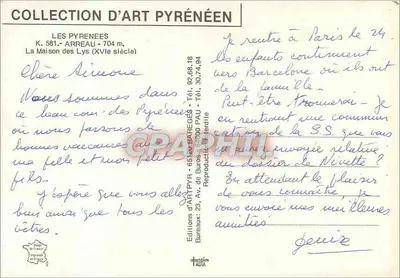 COLLECTION D'ART PYRÉNÉEN
LES PYRENEES
K. 581.- ARREAU - 704 m.
La Maison des Lys (XVIe siècle)
Chère Simone
Nous sommes dans
ce beau coin des Pyrénées
où nous passons de
bonnes vacances
ma fille et mon petit
fils.
J'espère que vous allez
bien ainsi que tous les
vôtres.
Editions d'ART PYR - 65 BAREGES - Tél. 92.68.18
Bureaux: 23, Av. de Buros - PAU - Tél. 30.74.94
Reproduction interdite
Je rentre à Paris le 24
les enfants continuent
vers Barcelone où ils ont
de la famille.
Peut-être trouverai-je
en rentrant une commun
de la SS que vous
envoyée relative
au dossier de Ninette.
En attendant le plaisir
de vous connaître, je
vous envoie mes meilleures
amitiés
CPAPHIL